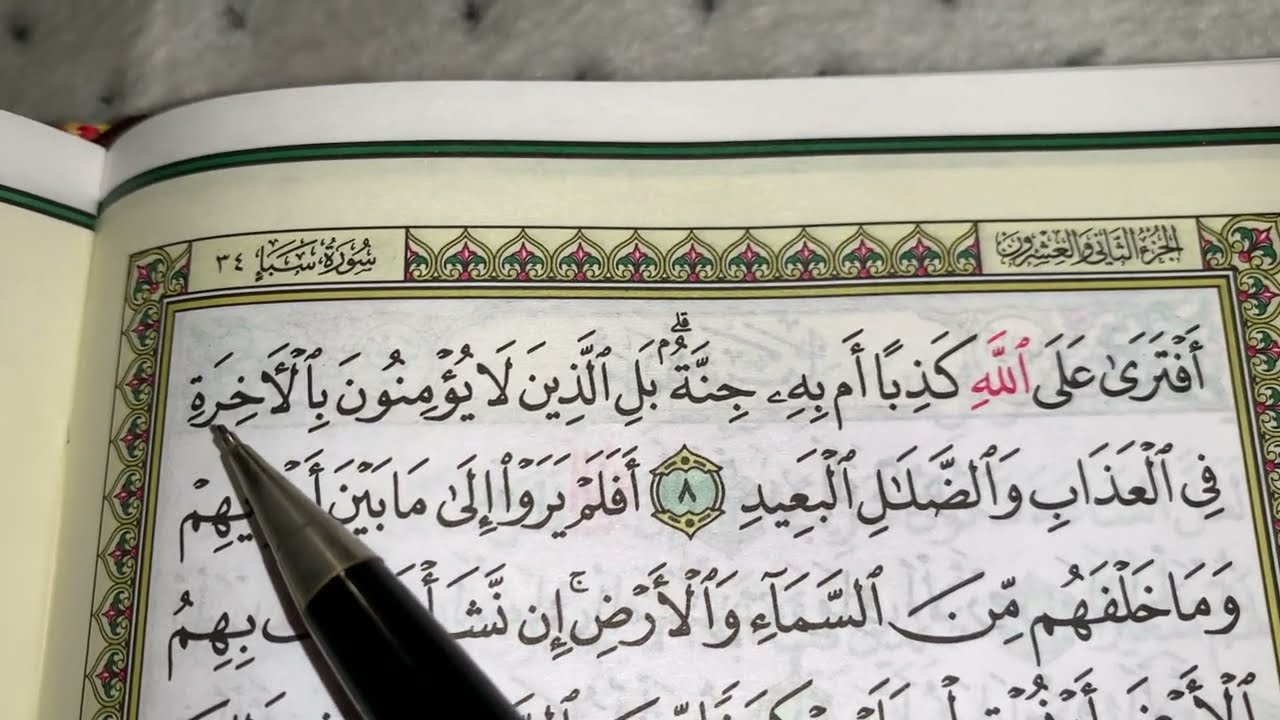 الجزء الثاني والعشرون
سُورَةُ سَبَإٍ ٣٤
أَفْتَرَىٰ عَلَى ٱللَّهِ كَذِبًا أَم بِهِۦ جِنَّةٌۢ ۗ بَلِ ٱلَّذِينَ لَا يُؤْمِنُونَ بِٱلْأَخِرَةِ
فِى ٱلْعَذَابِ وَٱلضَّلَـٰلِ ٱلْبَعِيدِ ٨ أَفَلَمْ يَرَوْا۟ إِلَىٰ مَا بَيْنَ
وَمَا خَلْفَهُم مِّنَ ٱلسَّمَآءِ وَٱلْأَرْضِ ۚ إِن نَّشَأْ بِهِمُ